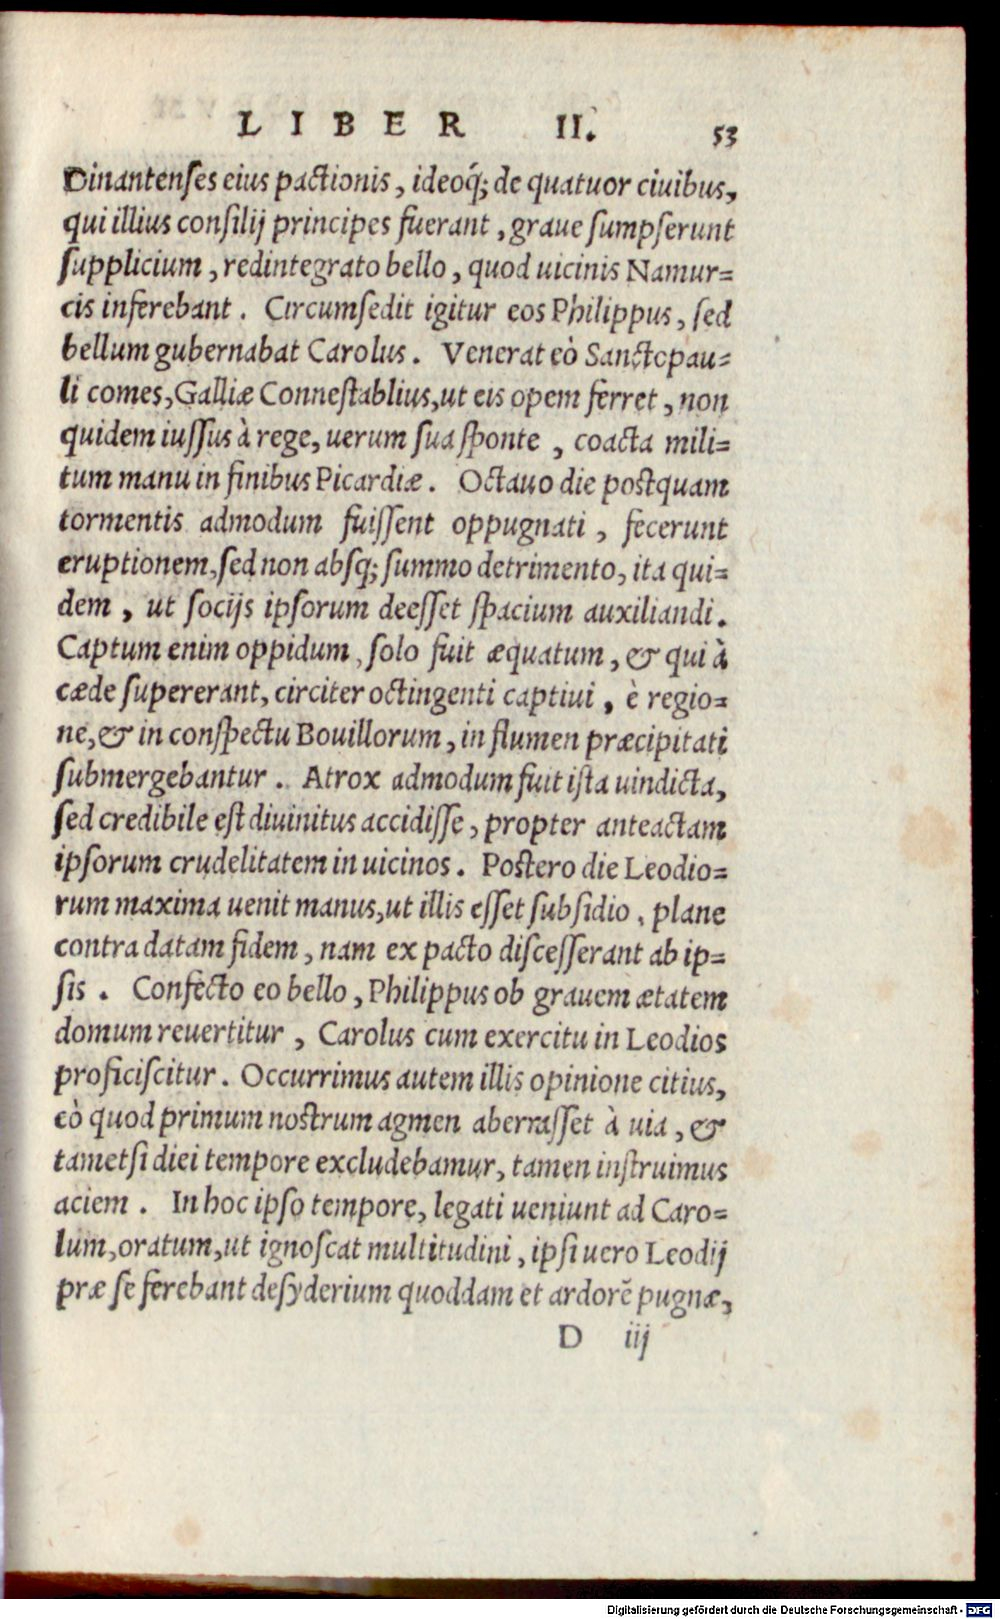 LIBER II. 53
Dinantenses eius pactionis, ideoq́; de quatuor ciuibus,
qui illius consilij principes fuerant, graue sumpserunt
supplicium, redintegrato bello, quod uicinis Namur=
cis inferebant. Circumsedit igitur eos Philippus, sed
bellum gubernabat Carolus. Venerat eò Sanctopau=
li comes, Galliæ Connestablius, ut eis opem ferret, non
quidem iussus à rege, uerum sua sponte, coacta mili=
tum manu in finibus Picardiæ. Octauo die postquam
tormentis admodum fuissent oppugnati, fecerunt
eruptionem, sed non absq; summo detrimento, ita qui=
dem, ut socijs ipsorum deesset spacium auxiliandi.
Captum enim oppidum, solo fuit æquatum, & qui à
cæde supererant, circiter octingenti captiui, è regio=
ne, & in conspectu Bouillorum, in flumen præcipitati
submergebantur. Atrox admodum fuit ista uindicta,
sed credibile est diuinitus accidisse, propter anteactam
ipsorum crudelitatem in uicinos. Postero die Leodio=
rum maxima uenit manus, ut illis esset subsidio, plane
contra datam fidem, nam ex pacto discesserant ab ip=
sis. Confecto eo bello, Philippus ob grauem ætatem
domum reuertitur, Carolus cum exercitu in Leodios
proficiscitur. Occurrimus autem illis opinione citius,
eò quod primum nostrum agmen aberrasset à uia, &
tametsi diei tempore excludebamur, tamen instruimus
aciem. In hoc ipso tempore, legati ueniunt ad Caro=
lum, oratum, ut ignoscat multitudini, ipsi uero Leodij
præ se ferebant desyderium quoddam et ardorē pugnæ,
D iij
Digitalisierung gefördert durch die Deutsche Forschungsgemeinschaft - DFG